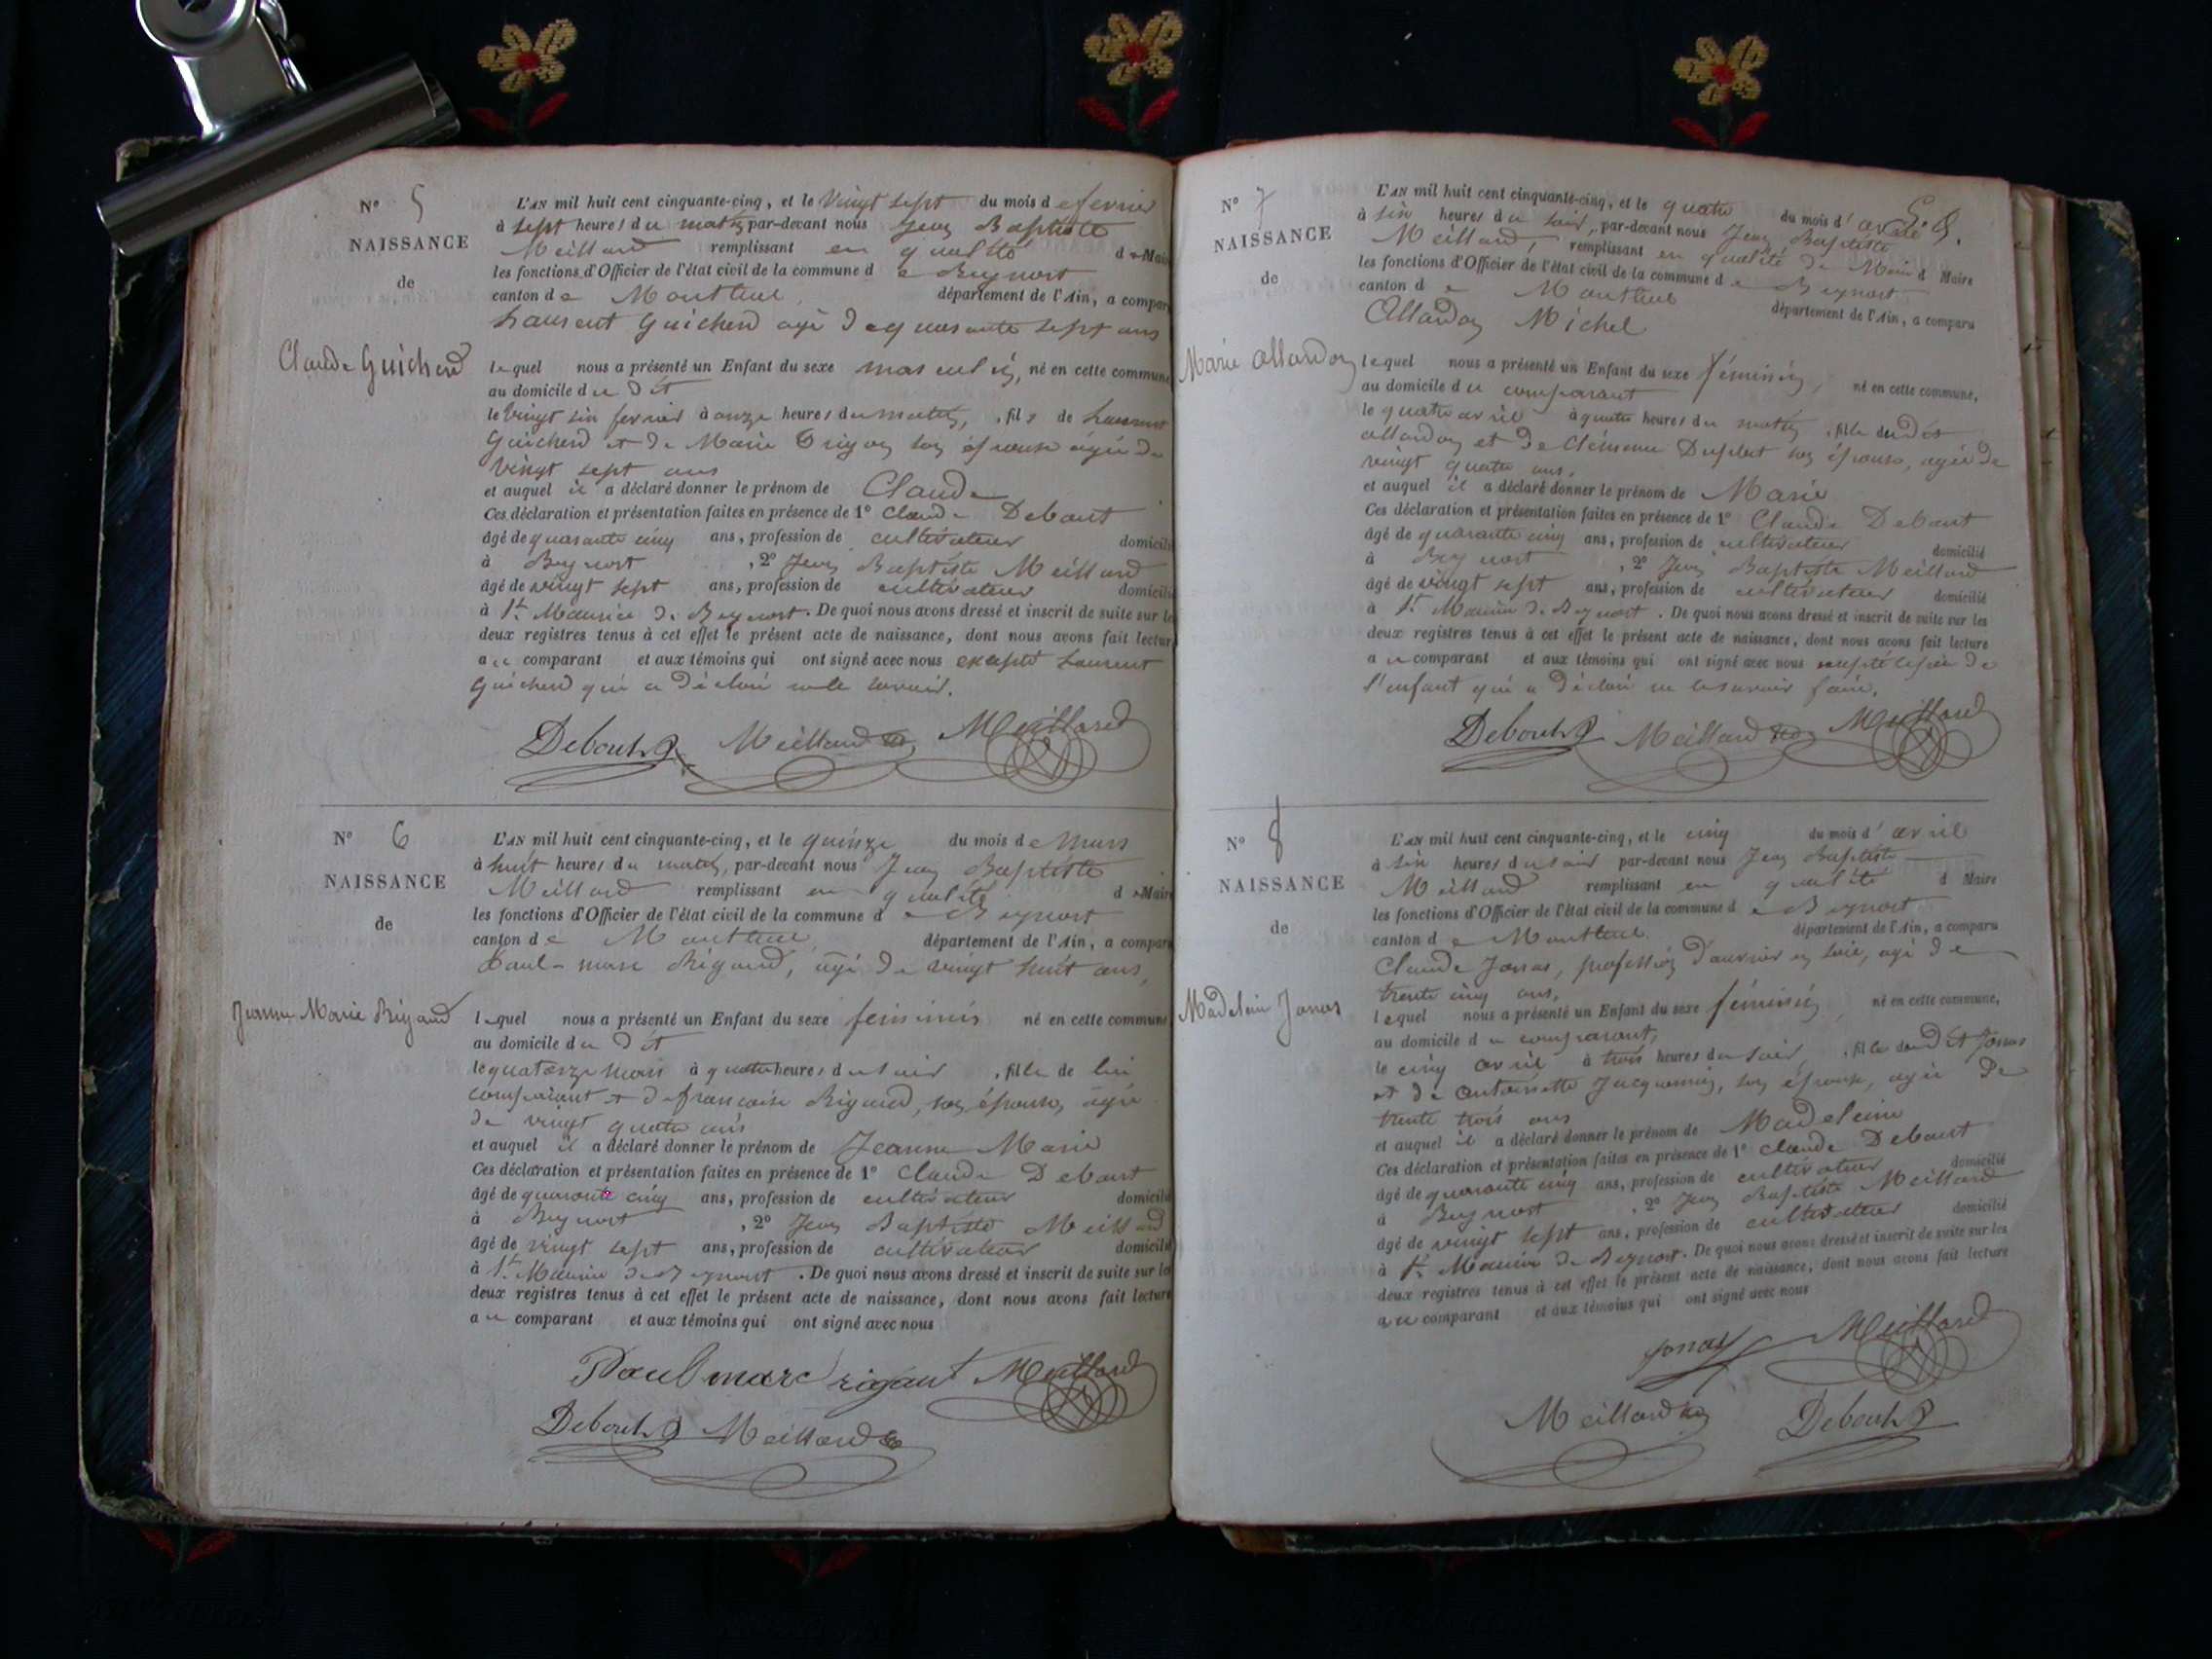 N° 5
NAISSANCE
de
Claude Guichend
L'AN mil huit cent cinquante-cinq, et le vingt sept du mois de fevrier
à sept heures du matin par-devant nous Jean Baptiste
Meillard remplissant en qualité de Maire
les fonctions d'Officier de l'état civil de la commune de Beynost
canton de Montluel, département de l'Ain, a compar
Laurent Guichend agé de quarante sept ans
lequel nous a présenté un Enfant du sexe masculin, né en cette commune
au domicile du dit
le vingt six fevrier à onze heures du matin, fils de Laurent
Guichend et de Marie son épouse agée de
vingt sept ans
et auquel il a déclaré donner le prénom de Claude
Ces déclaration et présentation faites en présence de 1° Claude Debout
âgé de quarante cinq ans, profession de cultivateur domicilié
à Beynost, 2° Jean Baptiste Meillard
âgé de vingt sept ans, profession de cultivateur domicilié
à St. Maurice de Beynost. De quoi nous avons dressé et inscrit de suite sur les
deux registres tenus à cet effet le présent acte de naissance, dont nous avons fait lecture
au comparant et aux témoins qui ont signé avec nous excepté Laurent
Guichend qui a déclaré ne le savoir.
Debout Meillard Meillard
N° 6
NAISSANCE
de
Jeanne Marie Rigaud
L'AN mil huit cent cinquante-cinq, et le quinze du mois de Mars
à huit heures du matin, par-devant nous Jean Baptiste
Meillard remplissant en qualité de Maire
les fonctions d'Officier de l'état civil de la commune de Beynost
canton de Montluel, département de l'Ain, a compar
Paul-marc Rigaud, agé de vingt huit ans,
lequel nous a présenté un Enfant du sexe feminin né en cette commune
au domicile du dit
le quatorze mars à quatre heures du soir, fille de lui
comparant et de françoise Rigaud, son épouse, agée
de vingt quatre ans
et auquel il a déclaré donner le prénom de Jeanne Marie
Ces déclaration et présentation faites en présence de 1° Claude Debout
âgé de quarante cinq ans, profession de cultivateur domicilié
à Beynost, 2° Jean Baptiste Meillard
âgé de vingt sept ans, profession de cultivateur domicilié
à St. Maurice de Beynost. De quoi nous avons dressé et inscrit de suite sur les
deux registres tenus à cet effet le présent acte de naissance, dont nous avons fait lecture
au comparant et aux témoins qui ont signé avec nous
Paul marc rigaut Meillard
Debout Meillard
N° 7
NAISSANCE
de
Marie Allardon
L'AN mil huit cent cinquante-cinq, et le quatre du mois d'avril
à six heures du soir, par-devant nous Jean Baptiste
Meillard, remplissant en qualité de Maire d Maire
les fonctions d'Officier de l'état civil de la commune de Beynost
canton de Montluel département de l'Ain, a comparu
Allardon Michel
lequel nous a présenté un Enfant du sexe féminin, né en cette commune,
au domicile du comparant
le quatre avril à quatre heures du matin, fille du dit
allardon et de Clémence Duplat son épouse, agée de
vingt quatre ans.
et auquel il a déclaré donner le prénom de Marie
Ces déclaration et présentation faites en présence de 1° Claude Debout
âgé de quarante cinq ans, profession de cultivateur domicilié
à Beynost, 2° Jean Baptiste Meillard
âgé de vingt sept ans, profession de cultivateur domicilié
à St. Maurice de Beynost. De quoi nous avons dressé et inscrit de suite sur les
deux registres tenus à cet effet le présent acte de naissance, dont nous avons fait lecture
au comparant et aux témoins qui ont signé avec nous excepté le père de
l'enfant qui a déclaré ne le savoir faire.
Debout Meillard Meillard
N° 8
NAISSANCE
de
Madeleine Jonas
L'AN mil huit cent cinquante-cinq, et le cinq du mois d'avril
à six heures du soir par-devant nous Jean Baptiste
Meillard remplissant en qualité d Maire
les fonctions d'Officier de l'état civil de la commune de Beynost
canton de Montluel. département de l'Ain, a comparu
Claude Jonas, profession d'ouvrier en soie, agé de
trente cinq ans,
lequel nous a présenté un Enfant du sexe féminin, né en cette commune,
au domicile du comparant,
le cinq avril à trois heures du soir, fille dudit Jonas
et de Antoinette Jacquemin, son épouse, agée de
trente trois ans
et auquel il a déclaré donner le prénom de Madeleine
Ces déclaration et présentation faites en présence de 1° Claude Debout
âgé de quarante cinq ans, profession de cultivateur domicilié
à Beynost, 2° Jean Baptiste Meillard
âgé de vingt sept ans, profession de cultivateur domicilié
à St. Maurice de Beynost. De quoi nous avons dressé et inscrit de suite sur les
deux registres tenus à cet effet le présent acte de naissance, dont nous avons fait lecture
au comparant et aux témoins qui ont signé avec nous
jonas Meillard
Meillard Debout